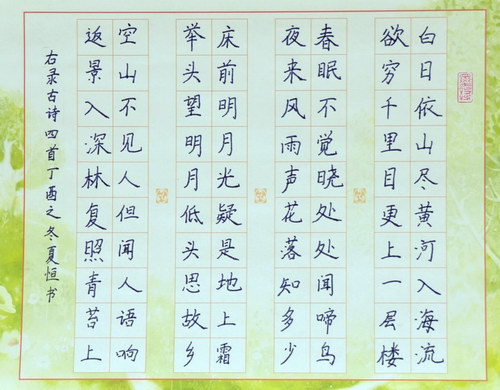 白日依山尽黄河入海流
欲穷千里目更上一层楼
春眠不觉晓处处闻啼鸟
夜来风雨声花落知多少
床前明月光疑是地上霜
举头望明月低头思故乡
空山不见人但闻人语响
返景入深林复照青苔上
右录古诗四首丁酉之冬夏恒书